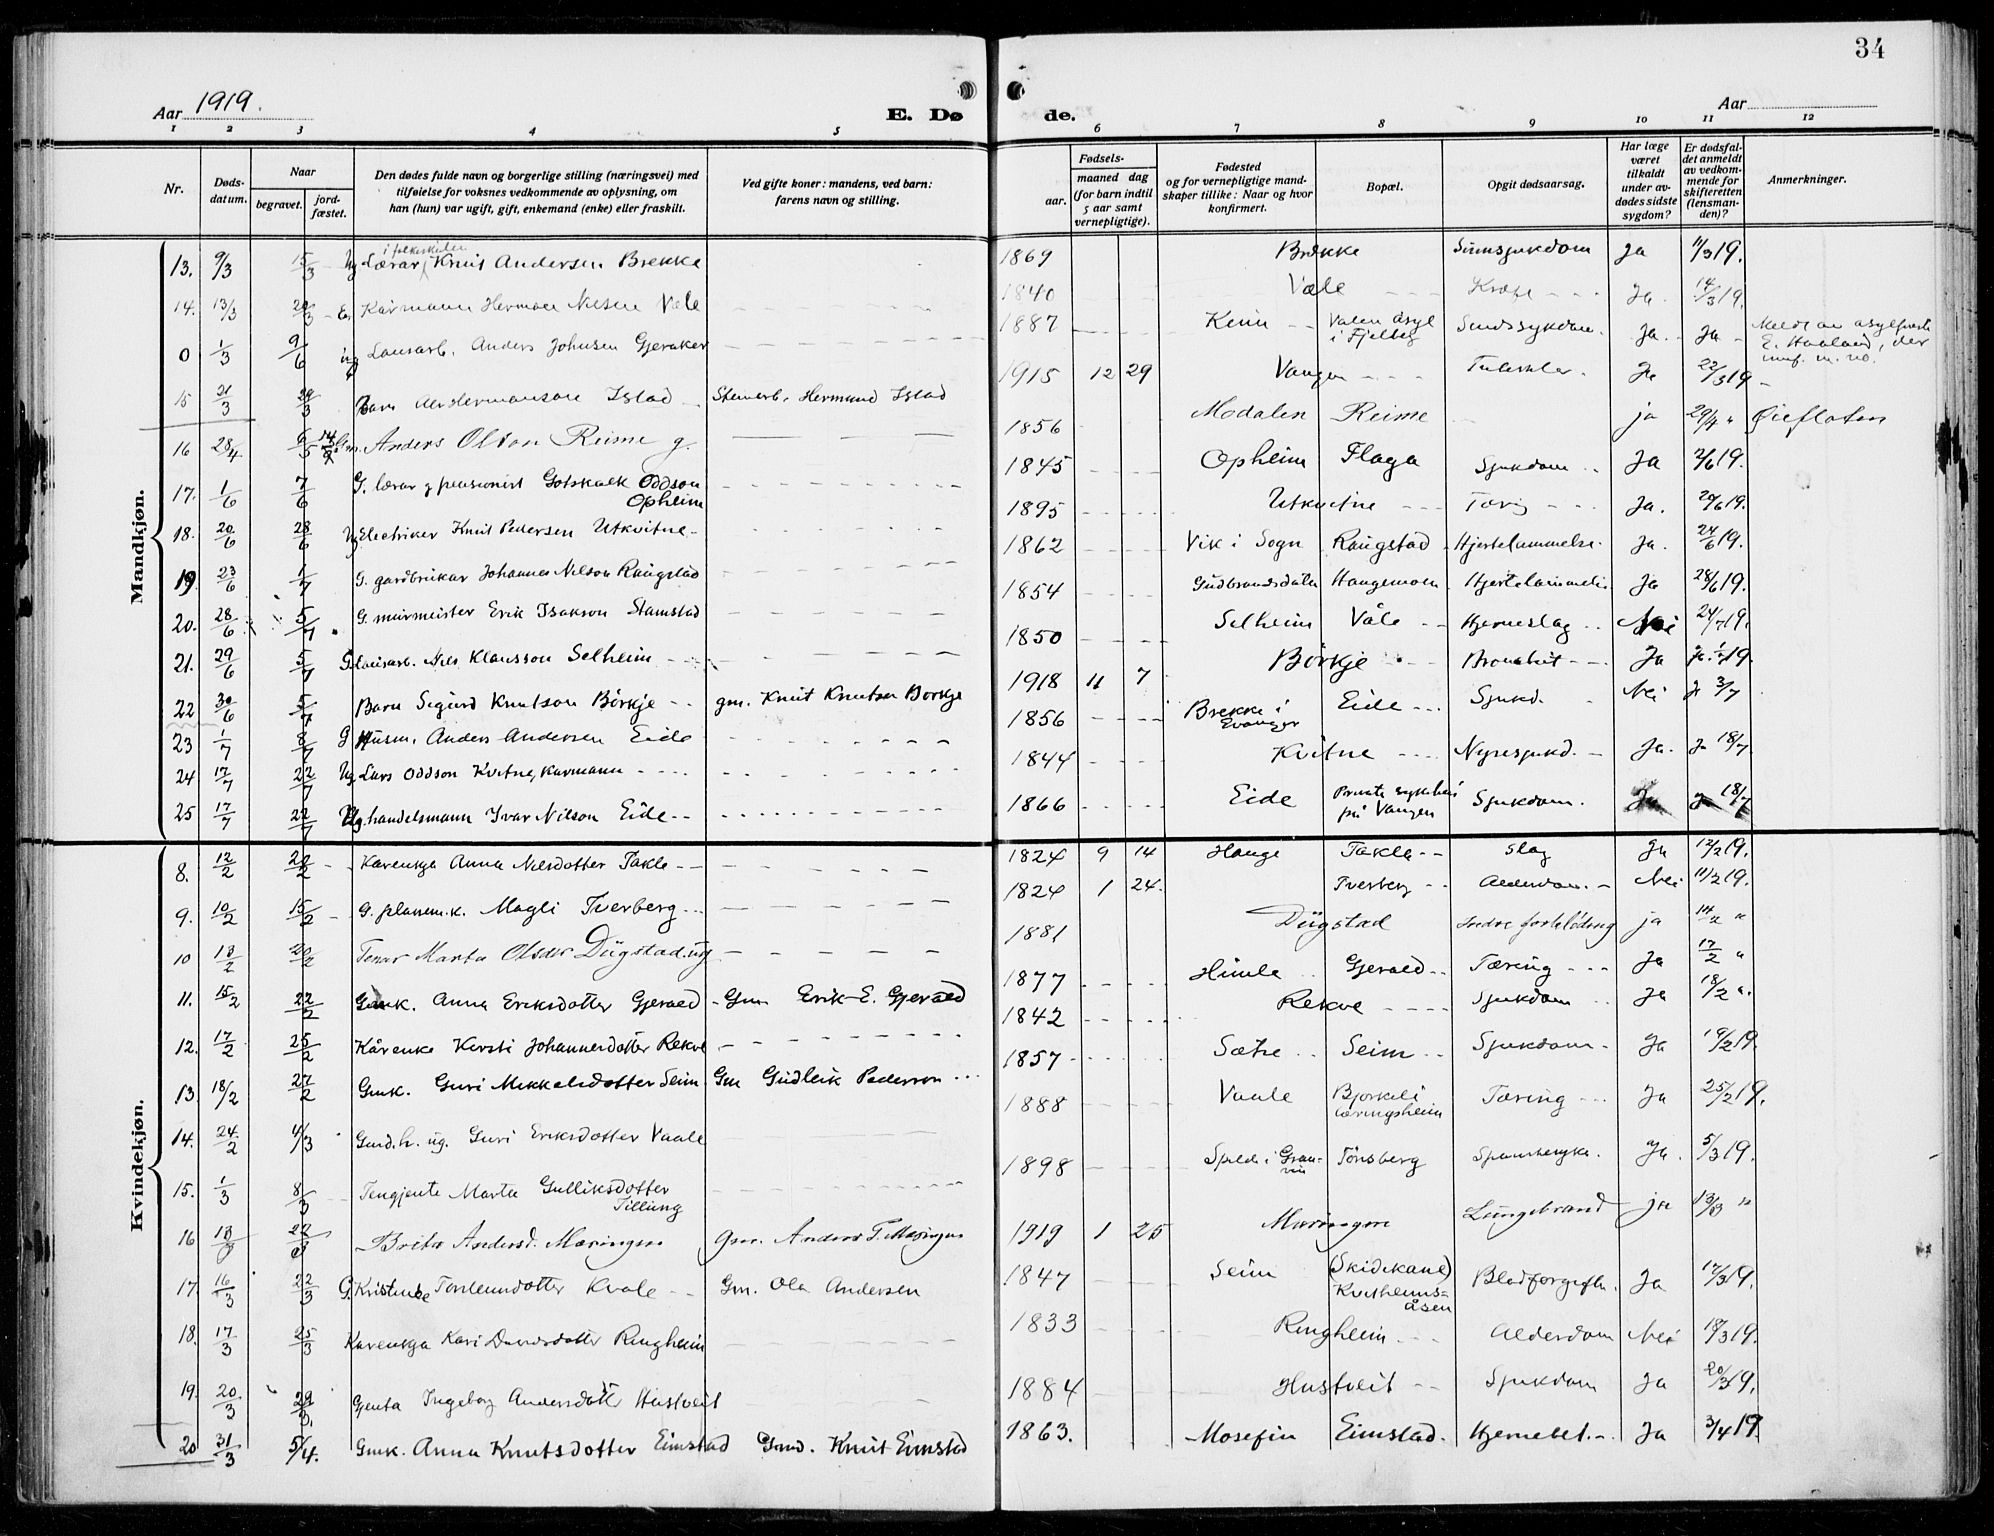 34
Aar 1919.
E. Dø
de.
Aar
1 2 3 4 5 6 7 8 9 10 11 12
Nr.
Døds-
datum.
Naar
begravet.
jord-
fæstet.
Den dødes fulde navn og borgerlige stilling (næringsvei) med
tilføielse for voksnes vedkommende av oplysning, om
han (hun) var ugift, gift, enkemand (enke) eller fraskilt.
Ved gifte koner: mandens, ved barn:
farens navn og stilling.
Fødsels-
aar.
maaned dag
(for barn indtil
5 aar samt
vernepligtige).
Fødested
og for vernepligtige mand-
skaper tillike: Naar og hvor
konfirmert.
Bopæl.
Opgit dødsaarsag.
Har læge
været
tilkaldt
under av-
dødes sidste
sygdom?
Er dødsfal-
det anmeldt
av vedkom-
mende for
skifteretten
(lensman-
den)?
Anmerkninger.
Mandkjøn.
13. 9/3 15/3 Ug Lærar i folkeskulen Knut Andersen Brekke 1869 Brekke Ja 11/3 19.
14. 13/3 Kårmann Herman Nilsen Væle 1840 Væle Ja. 14/3 19.
0 1/3 9/6 ug Lausarb. Anders Johnsen Gjeraker 1887 Valen asyl i Fjelberg Sinnssykdom. Ja. Ja E. Haaland, der
15 21/3 29/3 Barn Hermanson Istad Steinarb. Hermund Istad 1915 12 29 Vangen Ja 22/3 19
16 28/4 6/5 Gm. Anders Olson Reime g. 1856 Modalen Reime ja 29/4 " Øieflaten
17. 1/6 7/6 G. lærar og pensionist Gotskalk Oddson Opheim 1845 Opheim Flaga Sjukdom Ja 2/6 19.
18. 20/6 28/6 Ug Electriker Knut Pedersen Utkvitne 1895 Utkvitne Tæring Ja. 20/6 19.
19 23/6 1/7 G. gardbrukar Johannes Nilson Raugstad 1862 Vik i Sogn Raugstad Hjertelammelse. Ja. 24/6 19.
20. 28/6 5/7 G. murmeister Erik Isakson Stamstad 1854 Gudbrandsdalen Haugemoen Hjertelammelse Ja 28/6 19.
21. 29/6 5/7 G Lausarb. Nils Klausson Selheim 1850 Selheim Våle Hjerneslag Nei 24/7 19.
22 30/6 5/7 Barn Sigurd Knutson Börkje gm. Knut Knutson Börkje 1918 11 7 Börkje Bronchit Ja Ja. 1/7 19.
23 1/7 8/7 G Husm. Anders Andersen Eide 1856 Brekke i Evanger Eide Sjukd. Nei J 3/7
24 17/7 22/7 Ug Lars Oddson Kvitne, kårmann 1844 Kvitne Nyresjukd. Ja. Ja 18/7
25 17/7 22/7 Ug. handelsmann Ivar Nilson Eide 1866 Eide Private sykehus på Vangen Sjukdom. Ja Ja 18/7
Kvindekjøn.
8. 12/2 22/2 Kårenkja Anna Nilsdotter Takle 1824 9 14 Hauge Takle Slag Ja 12/2 19.
9. 10/2 15/2 G. plassm.k. Magli Tverberg 1824 1 24. Tverberg Alderdom. Nei 11/2 19.
10 13/2 20/2 Tenar Marta Olsdtr Dügstad. ug 1881 Dügstad Indre forblödning ja 14/2 "
11. 15/2 22/2 Gmk. Anna Eriksdotter Gjerald Gm Erik E. Gjerald 1877 Himle Gjerald Tæring Ja 17/2 "
12. 17/2 25/2 Kårenke Kersti Johannesdotter Rekve 1842 Rekve Sjukdom Ja 18/2 ".
13. 18/2 27/2 Gmk. Guri Mikkelsdotter Seim Gm Gudleik Pederson 1857 Sætre Seim Sjukdom Ja 19/2 19.
14. 24/2 4/3 Gmd.h. ug. Guri Eriksdotter Vaale 1888 Vaale Bjorkeli tæringsheim Tæring Ja 25/2 19.
15. 1/3 8/3 Tengjente Marta Gulliksdotter Tillung 1898 i Granvin Tönsberg Spanskesyke. Ja. 5/3 19.
16 22/3 Brita Andersd. Møringen gm. Anders T. Møringen 1919 1 25 Møringen Lungebrand ja 13/3 "
17. 16/3 22/3 G. Kristense Torleivsdotter Kvale Gm. Ola Andersen 1847 Seim (Skidekane) Kvitheimsåsen Blodforgiftn. Ja 17/3 19.
18. 17/3 25/3 Kårenkja Kari Davidsdotter Ringheim 1833 Ringheim Alderdom Nei 18/3 19.
19. 20/3 29/3. Gjenta Ingeborg Andersdötr Hustveit 1884 Hustveit Sjukdom Ja 20/3 19.
20 31/3 5/4. Gmk. Anna Knutsdotter Eimstad Gmd. Knut Eimstad 1863. Mosefin Eimstad. Hjernebet. Ja 3/4 19